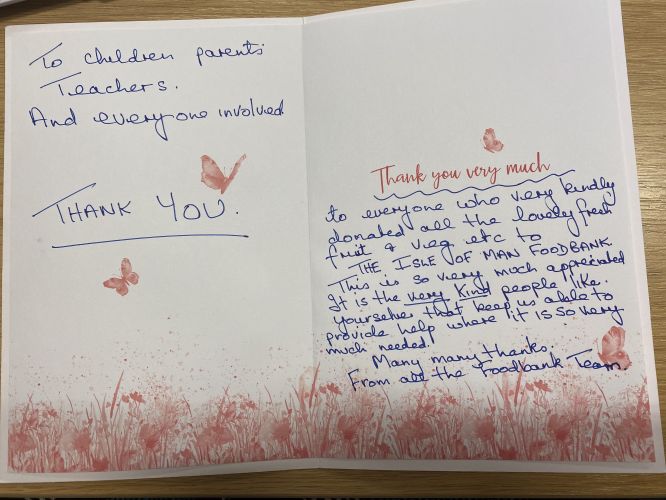 To children parents
Teachers.
And everyone involved
THANK YOU.
Thank you very much
to everyone who very kindly
donated all the lovely fresh
fruit & veg etc to
THE ISLE OF MAN FOODBANK.
This is so very much appreciated
It is the very kind people like
yourselves that keep us able to
provide help where it is so very
much needed!
Many many thanks.
From all the Foodbank Team.